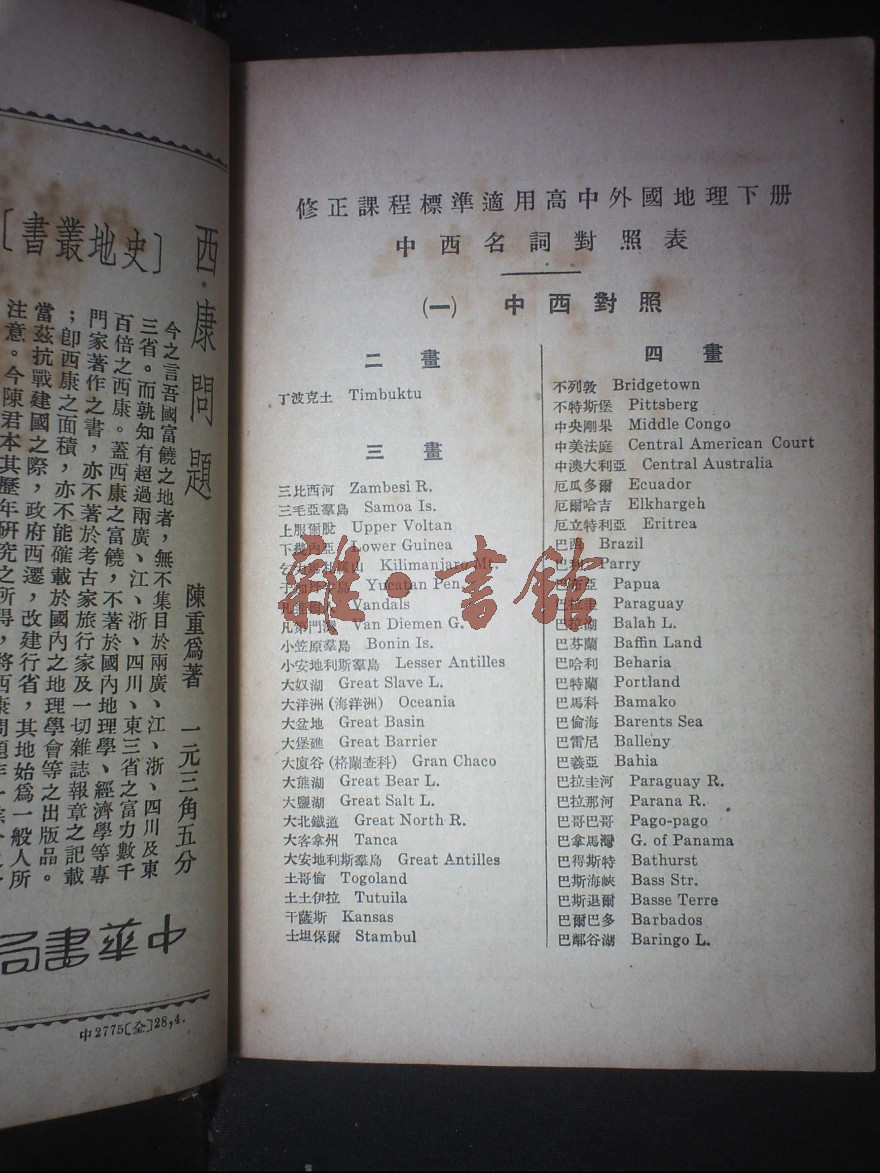 修正課程標準適用高中外國地理下册
中西名詞對照表
(一) 中西對照
二畫
丁波克土 Timbuktu
三畫
三比西河 Zambesi R.
三毛亞羣島 Samoa Is.
上服爾脫 Upper Voltan
下幾內亞 Lower Guinea
Kilimanjaro Mt.
Yucatan Pen.
Vandals
凡第門灣 Van Diemen G.
小笠原羣島 Bonin Is.
小安地利斯羣島 Lesser Antilles
大奴湖 Great Slave L.
大洋洲(海洋洲) Oceania
大盆地 Great Basin
大堡礁 Great Barrier
大廈谷(格蘭查科) Gran Chaco
大熊湖 Great Bear L.
大鹽湖 Great Salt L.
大北鐵道 Great North R.
大客拿州 Tanca
大安地利斯羣島 Great Antilles
土哥倫 Togoland
土土伊拉 Tutuila
干薩斯 Kansas
士坦保爾 Stambul
四畫
不列敦 Bridgetown
不特斯堡 Pittsberg
中央剛果 Middle Congo
中美法庭 Central American Court
中澳大利亞 Central Australia
厄瓜多爾 Ecuador
厄爾哈吉 Elkhargeh
厄立特利亞 Eritrea
巴西 Brazil
Parry
巴布亞 Papua
巴拉圭 Paraguay
巴拉湖 Balah L.
巴芬蘭 Baffin Land
巴哈利 Beharia
巴特蘭 Portland
巴馬科 Bamako
巴倫海 Barents Sea
巴雷尼 Balleny
巴羲亞 Bahia
巴拉圭河 Paraguay R.
巴拉那河 Parana R.
巴哥巴哥 Pago-pago
巴拿馬灣 G. of Panama
巴得斯特 Bathurst
巴斯海峽 Bass Str.
巴斯退爾 Basse Terre
巴爾巴多 Barbados
巴鄰谷湖 Baringo L.
雜·書館
[史地叢書]
西康問題
陳重爲著 一元三角五分
今之言吾國富饒之地者，無不集目於兩廣、江、浙、四川及東
三省。而孰知有超過兩廣、江、浙、四川、東三省之富力數千
百倍之西康。蓋西康之富饒，不著於國內地理學、經濟學等專
門家著作之書，亦不著於考古家旅行家及一切雜誌報章之記載
；卽西康之面積，亦不能確載於國內之地理學會等之出版品。
當茲抗戰建國之際，政府西遷，改建行省，其地始爲一般人所
注意。今陳君本其歷年研究之所得，將西康問題作一
中華書局
中2775〔全〕28,4.